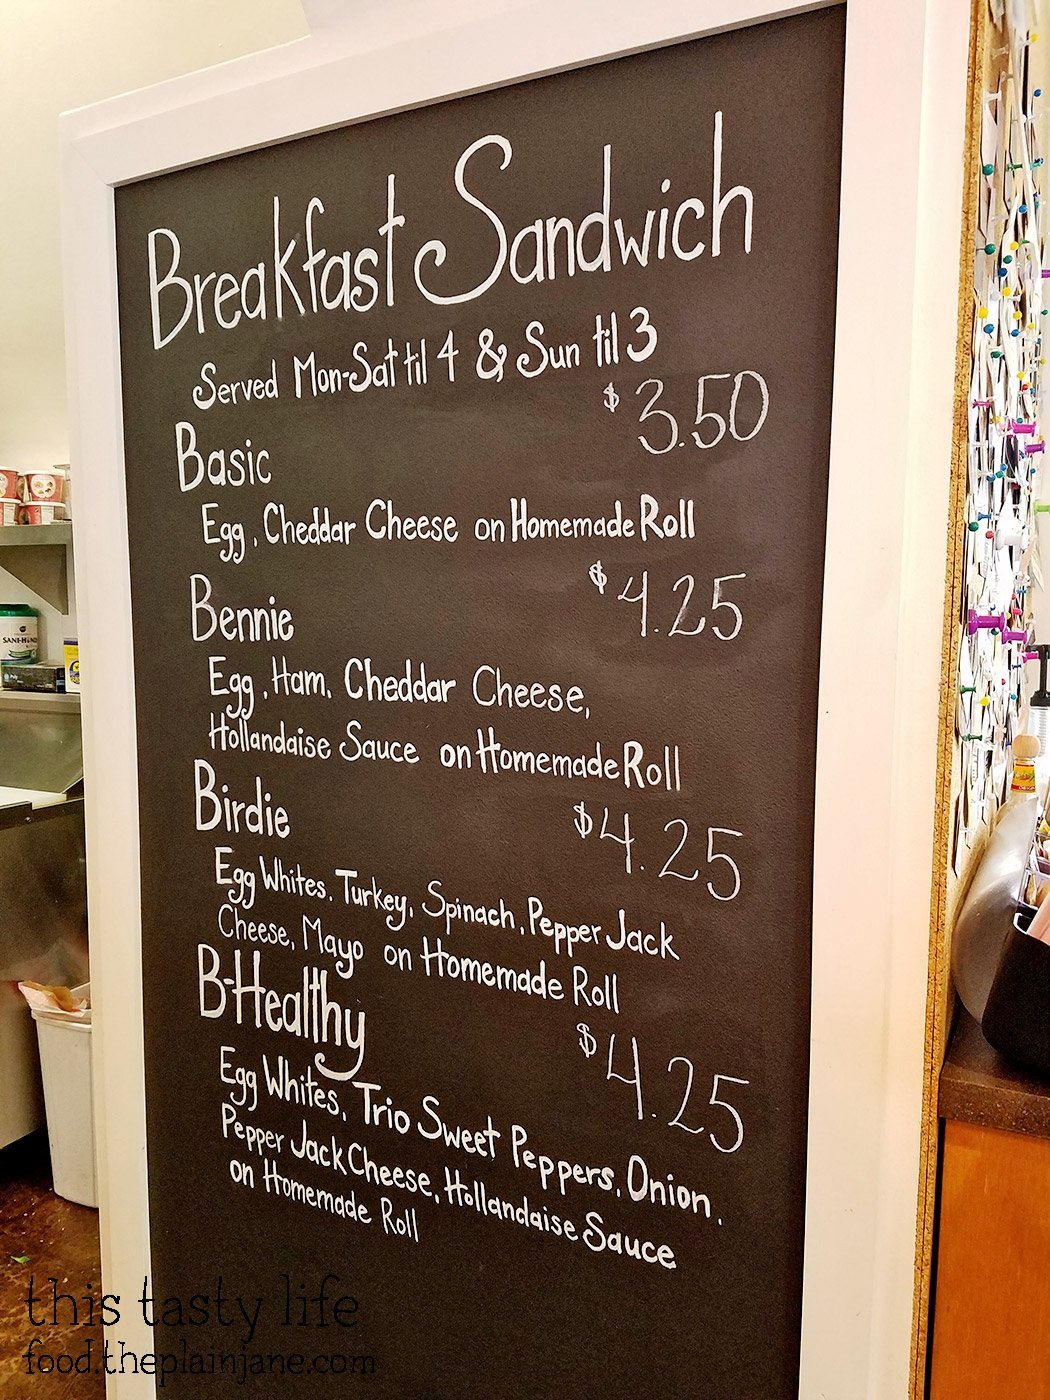 Breakfast Sandwich
Served Mon-Sat til 4 & Sun til 3
$3.50
Basic
Egg, Cheddar Cheese on Homemade Roll
$4.25
Bennie
Egg, Ham, Cheddar Cheese,
Hollandaise Sauce on Homemade Roll
Birdie
$4.25
Egg Whites, Turkey, Spinach, Pepper Jack
Cheese, Mayo on Homemade Roll
B-Healthy
$4.25
Egg Whites, Trio Sweet Peppers, Onion,
Pepper Jack Cheese, Hollandaise Sauce
on Homemade Roll
SANI-HANDS
this tasty life
food.theplainjane.com